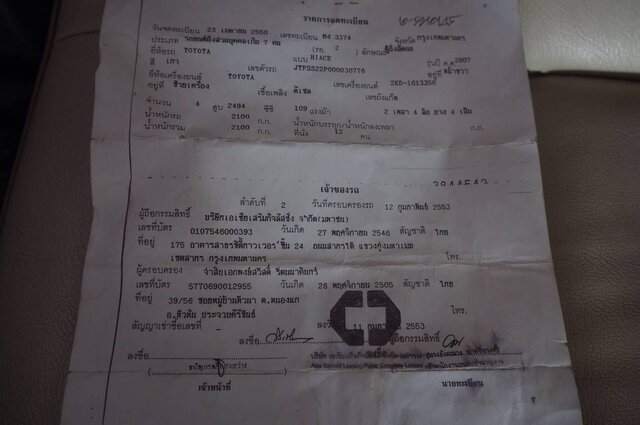 รายการจดทะเบียน
วันจดทะเบียน 23 เมษายน 2550 เลขทะเบียน ฮง 3374 จังหวัด กรุงเทพมหานคร
ประเภท รถยนต์นั่งส่วนบุคคลเกิน 7 คน (รย. 2 ) ลักษณะ
ยี่ห้อรถ TOYOTA แบบ HIACE รุ่นปี ค.ศ 2007
สี เทา เลขตัวรถ JTFSS22P000030776 อยู่ที่
ยี่ห้อเครื่องยนต์ TOYOTA เลขเครื่องยนต์ 2KD-1613356
อยู่ที่ เชื้อเพลิง ดีเซล เลขถังแก๊ส
จำนวน 4 สูบ 2494 ซีซี 109 แรงม้า 2 เพลา 4 ล้อ ยาง 4 เส้น
น้ำหนักรถ 2100 ก.ก. น้ำหนักบรรทุก/น้ำหนักลงเพลา ก.ก.
น้ำหนักรวม 2100 ก.ก. ที่นั่ง 12 คน
เจ้าของรถ
ลำดับที่ 2 วันที่ครอบครองรถ 12 กุมภาพันธ์ 2553
ผู้ถือกรรมสิทธิ์ บริษัทเอเซียเสริมกิจลีสซิ่ง จำกัด(มหาชน)
เลขที่บัตร 0107546000393 วันเกิด 27 พฤศจิกายน 2546 สัญชาติ ไทย
ที่อยู่ 175 อาคารสาธรซิตี้ทาวเวอร์ชั้น 24 ถนนสาทรใต้ แขวงทุ่งมหาเมฆ
เขตสาทร กรุงเทพมหานคร โทร.
ผู้ครอบครอง
เลขที่บัตร 5770690012955 วันเกิด 28 พฤศจิกายน 2505 สัญชาติ ไทย
ที่อยู่ 39/56 ต.หนองแก
อ.หัวหิน ประจวบคีรีขันธ์ โทร.
สัญญาเช่าซื้อเลขที่ 11 2553
ลงชื่อ ผู้ถือกรรมสิทธิ์
ลงชื่อ
Asia Sermkij Leasing Public Company Limited
เจ้าหน้าที่ นายทะเบียน